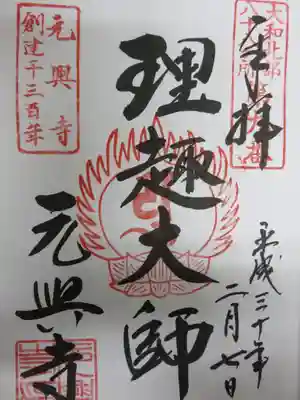 奉拝
大和北部
八十八ヶ所
平成三十年
二月七日
理趣大師
元興寺
創建千三百年
元興寺